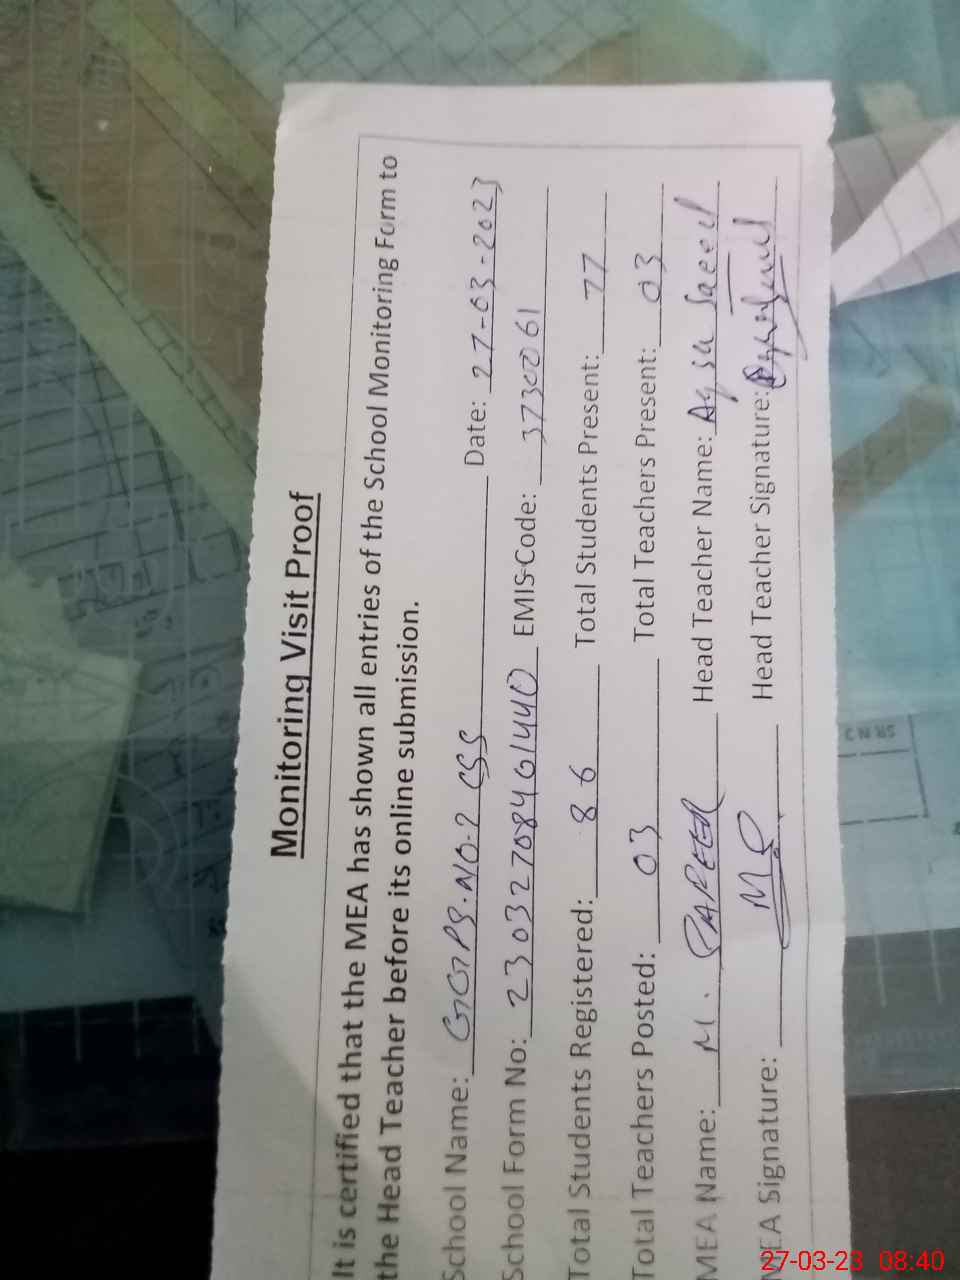 Monitoring Visit Proof
It is certified that the MEA has shown all entries of the School Monitoring Form to
the Head Teacher before its online submission.
School Name: GGPS.NO-2 CSS Date: 27-03-2023
School Form No: 23032708461440 EMIS Code: 3730061
Total Students Registered: 86 Total Students Present: 77
Total Teachers Posted: 03 Total Teachers Present: 03
MEA Name: M. Head Teacher Name: Aqsa Saeed
MEA Signature: Head Teacher Signature:
SR N 2
27-03-23 08:40